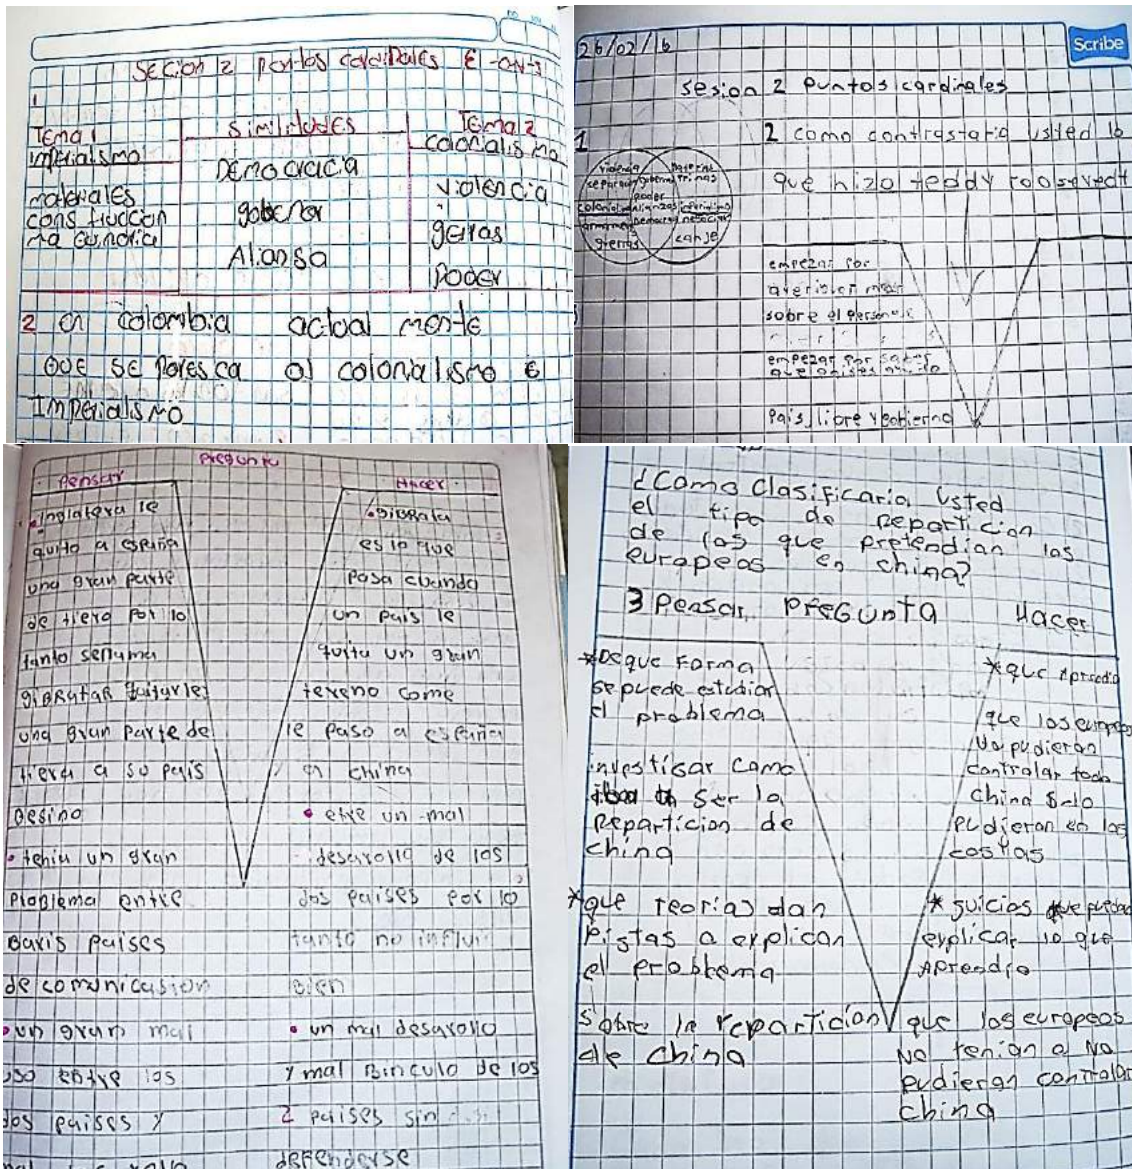 SECion 2 pontos cardinales E
1
TEMA 1
imperialismo
materiales
construccion
SimiliTudES
DEMocracia
goberner
Aliansa
TEMa 2
colonalismo
violencia
gerras
PodEr
2 en colombia actual mente
QUE SE ParESca al colonialismo E
ImPErialisMo
26/02/16
Scribe
sesion 2 puntos cardinales
1
violencia
colonial
guerras
canje
2 como contrastaria usted lo
que hizo teddy
empezar por
sobre el personaje
empezar por saber
Pais libre
Pregunta
Pensar
Hacer
inglatera le
quito a españa
una gran parte
de tiera por lo
tanto sellama
giBRatar quitarle
una gran Parte de
tiera a su pais
besino
• tenia un gran
Problema entre
Baris Paises
de comunicasion
• un gran mal
uso entre los
dos paises y
•giBRata
es lo que
Pasa cuando
un pais le
quita un gran
tereno come
le paso a españa
en china
• etre un mal
desarollo de los
dos paises por lo
tanto no influi
Bien
• un mal desarollo
y mal Binculo de los
2 paises sin
defenderse
¿Como Clasificaria usted
el tipo de Reparticion
de los que pretendian los
europeos en china?
3 Pensar PREGUnTA Hacer
*De que Forma
se puede estudiar
el problema
investigar como
ser la
Reparticion de
china
*que teorias dan
Pistas o explican
el problema
Sobre la reparticion
de china
*que Aprendio
que los europeos
no pudieron
controlar toda
china solo
pudieron en las
costas
* juicios que puedan
explicar lo que
Aprendio
que los europeos
No tenian o No
pudieran controlar
china